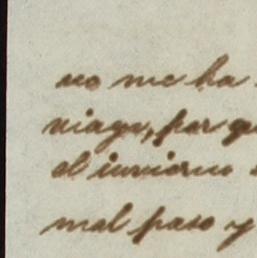 no me ha
viage, por qu
el invierno
mal paso y